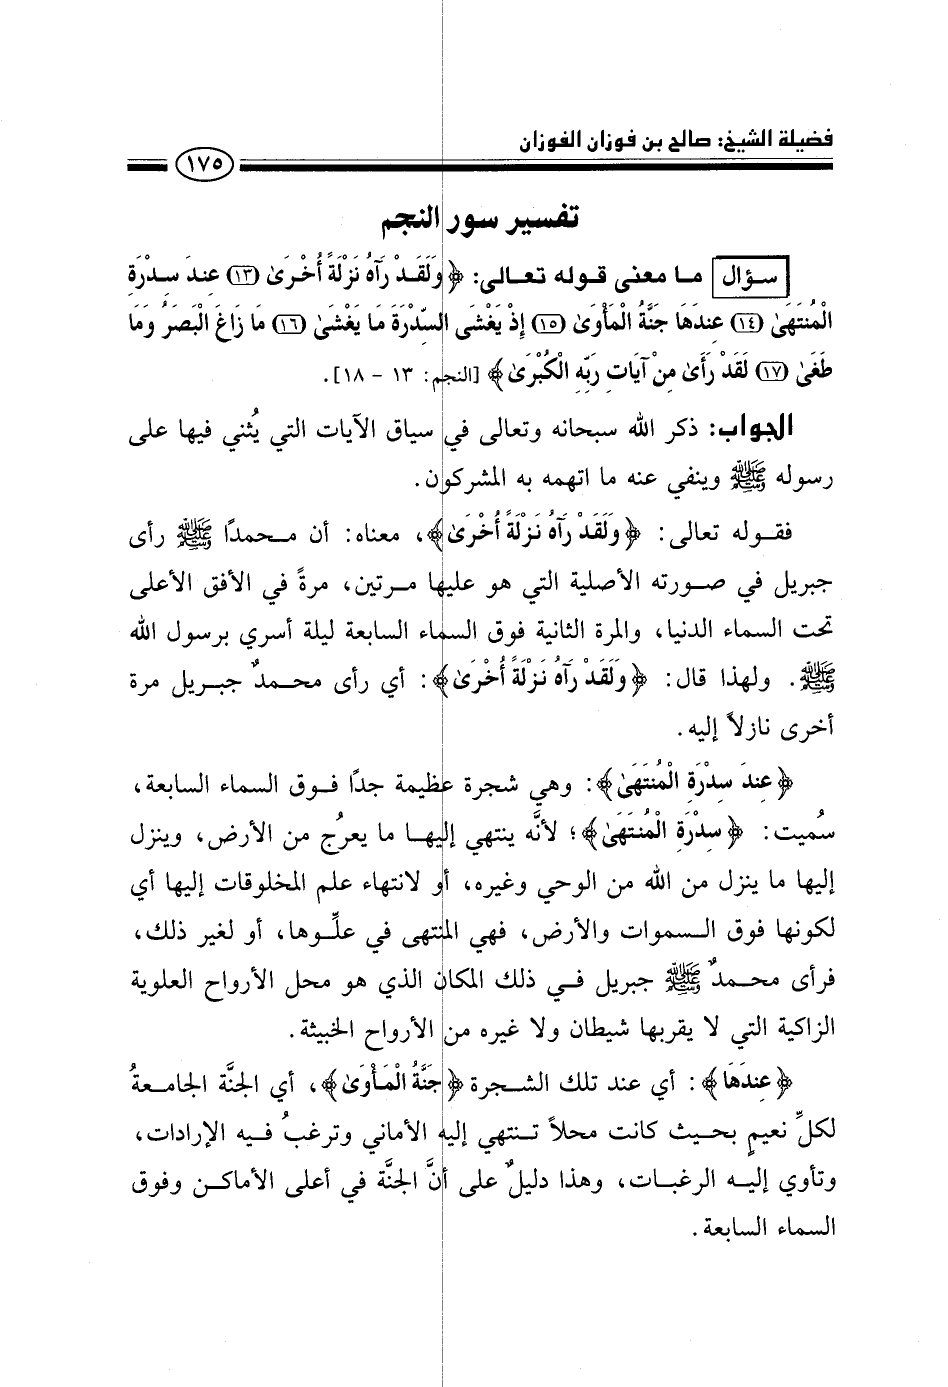 فضيلة الشيخ: صالح بن فوزان الفوزان
١٧٥
تفسير سور النجم
سؤال ما معنى قوله تعالى: ﴿وَلَقَدْ رَآهُ نَزْلَةً أُخْرَىٰ (١٣) عِندَ سِدْرَةِ
الْمُنتَهَىٰ (١٤) عِندَهَا جَنَّةُ الْمَأْوَىٰ (١٥) إِذْ يَغْشَى السِّدْرَةَ مَا يَغْشَىٰ (١٦) مَا زَاغَ الْبَصَرُ وَمَا
طَغَىٰ (١٧) لَقَدْ رَأَىٰ مِنْ آيَاتِ رَبِّهِ الْكُبْرَىٰ﴾ [النجم: ١٣ - ١٨].
الجواب: ذكر الله سبحانه وتعالى في سياق الآيات التي يُثني فيها على
رسوله ﷺ وينفي عنه ما اتهمه به المشركون.
فقوله تعالى: ﴿وَلَقَدْ رَآهُ نَزْلَةً أُخْرَىٰ﴾، معناه: أن محمدًا ﷺ رأى
جبريل في صورته الأصلية التي هو عليها مرتين، مرةً في الأفق الأعلى
تحت السماء الدنيا، والمرة الثانية فوق السماء السابعة ليلة أسري برسول الله
ﷺ. ولهذا قال: ﴿وَلَقَدْ رَآهُ نَزْلَةً أُخْرَىٰ﴾: أي رأى محمدٌ جبريل مرة
أخرى نازلاً إليه.
﴿عِندَ سِدْرَةِ الْمُنتَهَىٰ﴾: وهي شجرة عظيمة جدًا فوق السماء السابعة،
سُميت: ﴿سِدْرَةِ الْمُنتَهَىٰ﴾؛ لأنَّه ينتهي إليها ما يعرُج من الأرض، وينزل
إليها ما ينزل من الله من الوحي وغيره، أو لانتهاء علم المخلوقات إليها أي
لكونها فوق السموات والأرض، فهي المنتهى في علِّوها، أو لغير ذلك،
فرأى محمدٌ ﷺ جبريل في ذلك المكان الذي هو محل الأرواح العلوية
الزاكية التي لا يقربها شيطان ولا غيره من الأرواح الخبيثة.
﴿عِندَهَا﴾: أي عند تلك الشجرة ﴿جَنَّةُ الْمَأْوَىٰ﴾، أي الجنَّة الجامعةُ
لكلِّ نعيمٍ بحيث كانت محلاً تنتهي إليه الأماني وترغبُ فيه الإرادات،
وتأوي إليه الرغبات، وهذا دليلٌ على أنَّ الجنَّة في أعلى الأماكن وفوق
السماء السابعة.